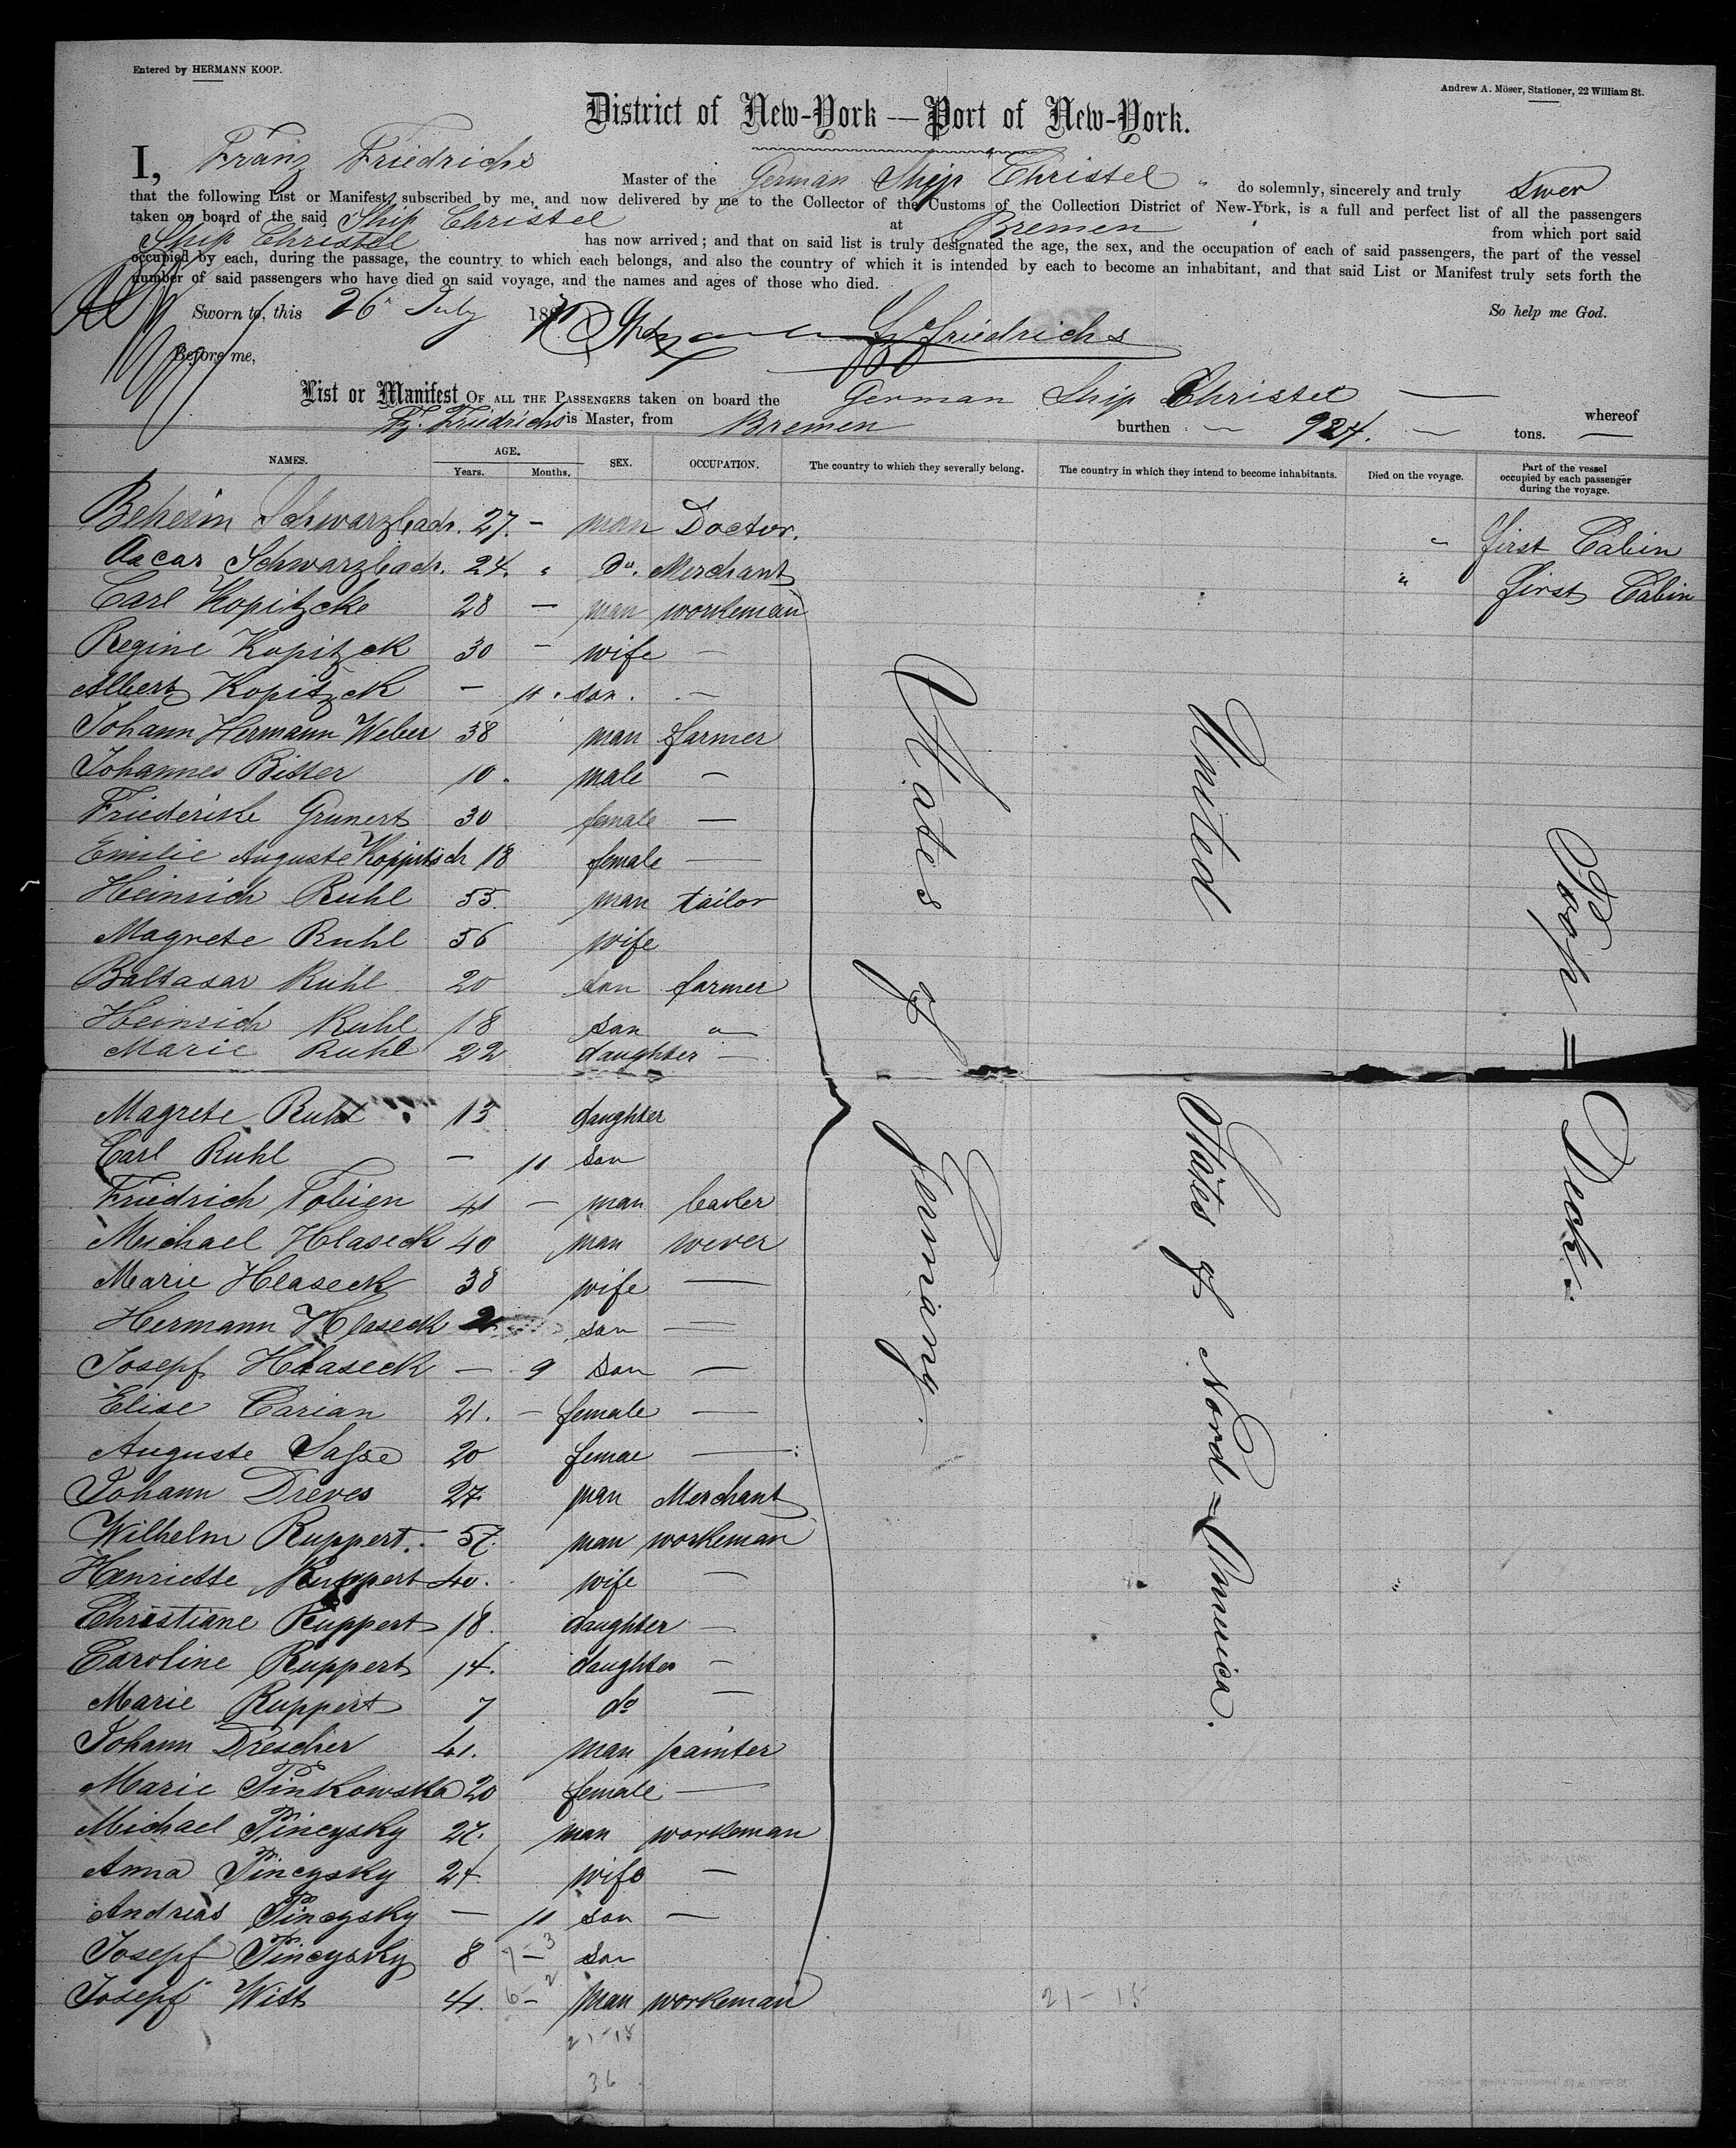 Entered by HERMANN KOOP.
Andrew A. Möser, Stationer, 22 William St.
District of New-York — Port of New-York.
I, Franz Friedrichs Master of the German Ship Christel do solemnly, sincerely and truly swer
that the following List or Manifest, subscribed by me, and now delivered by me to the Collector of the Customs of the Collection District of New-York, is a full and perfect list of all the passengers
taken on board of the said Ship Christel at Bremen from which port said
Ship Christel has now arrived; and that on said list is truly designated the age, the sex, and the occupation of each of said passengers, the part of the vessel
occupied by each, during the passage, the country to which each belongs, and also the country of which it is intended by each to become an inhabitant, and that said List or Manifest truly sets forth the
number of said passengers who have died on said voyage, and the names and ages of those who died.
So help me God.
Sworn to, this 26 July 187
Fz Friedrichs
Before me,
List or Manifest OF ALL THE PASSENGERS taken on board the German Ship Christel — whereof
Fz. Friedrichs is Master, from Bremen burthen — 924. — tons. —
NAMES. AGE. Years. Months. SEX. OCCUPATION. The country to which they severally belong. The country in which they intend to become inhabitants. Died on the voyage. Part of the vessel occupied by each passenger during the voyage.
Beheim Schwarzbach. 27. - man Doctor. " first Cabin
Oscar Schwarzbach. 24. " do. Merchant " first Cabin
Carl Kopitzcke 28 - man workeman
Regine Kopitzck 30 - wife -
Albert Kopitzck - 11. son. -
Johann Hermann Weber 38 man farmer
Johannes Bitter 10. male -
Friederike Grunert 30 female -
Emilie Auguste Koppitsch 18 female -
Heinrich Ruhl 55. man tailor
Magrete Ruhl 56 wife
Baltasar Ruhl 20 son farmer
Heinrich Ruhl 18 son "
Marie Ruhl 22 daughter -
Magrete Ruhl 13 daughter
Carl Ruhl - 11 son
Friedrich Tobien 41 - man baker
Michael Hlaseck 40 man wever
Marie Hlaseck 38 wife -
Hermann Hlaseck 2 son -
Josepf Hlaseck - 9 son -
Elise Carian 21. - female -
Auguste Sasse 20 femae -
Johann Dreves 27. man Merchant
Wilhelm Ruppert. 57. man workeman
Henriette Ruppert 40. wife -
Christiane Ruppert 18. daughter -
Caroline Ruppert 14. daughter -
Marie Ruppert 7 do -
Johann Drescher 41. man painter
Marie Pinkowska 20 female -
Michael Pincysky 27. man workeman
Anna Pincysky 24 wife -
Andreas Pincysky - 11 son -
Josepf Pincysky 8 - son
Josepf Witt 41. - man workeman
States of Germany.
United States of Nord=America.
Deck.
21-15
21-15
36